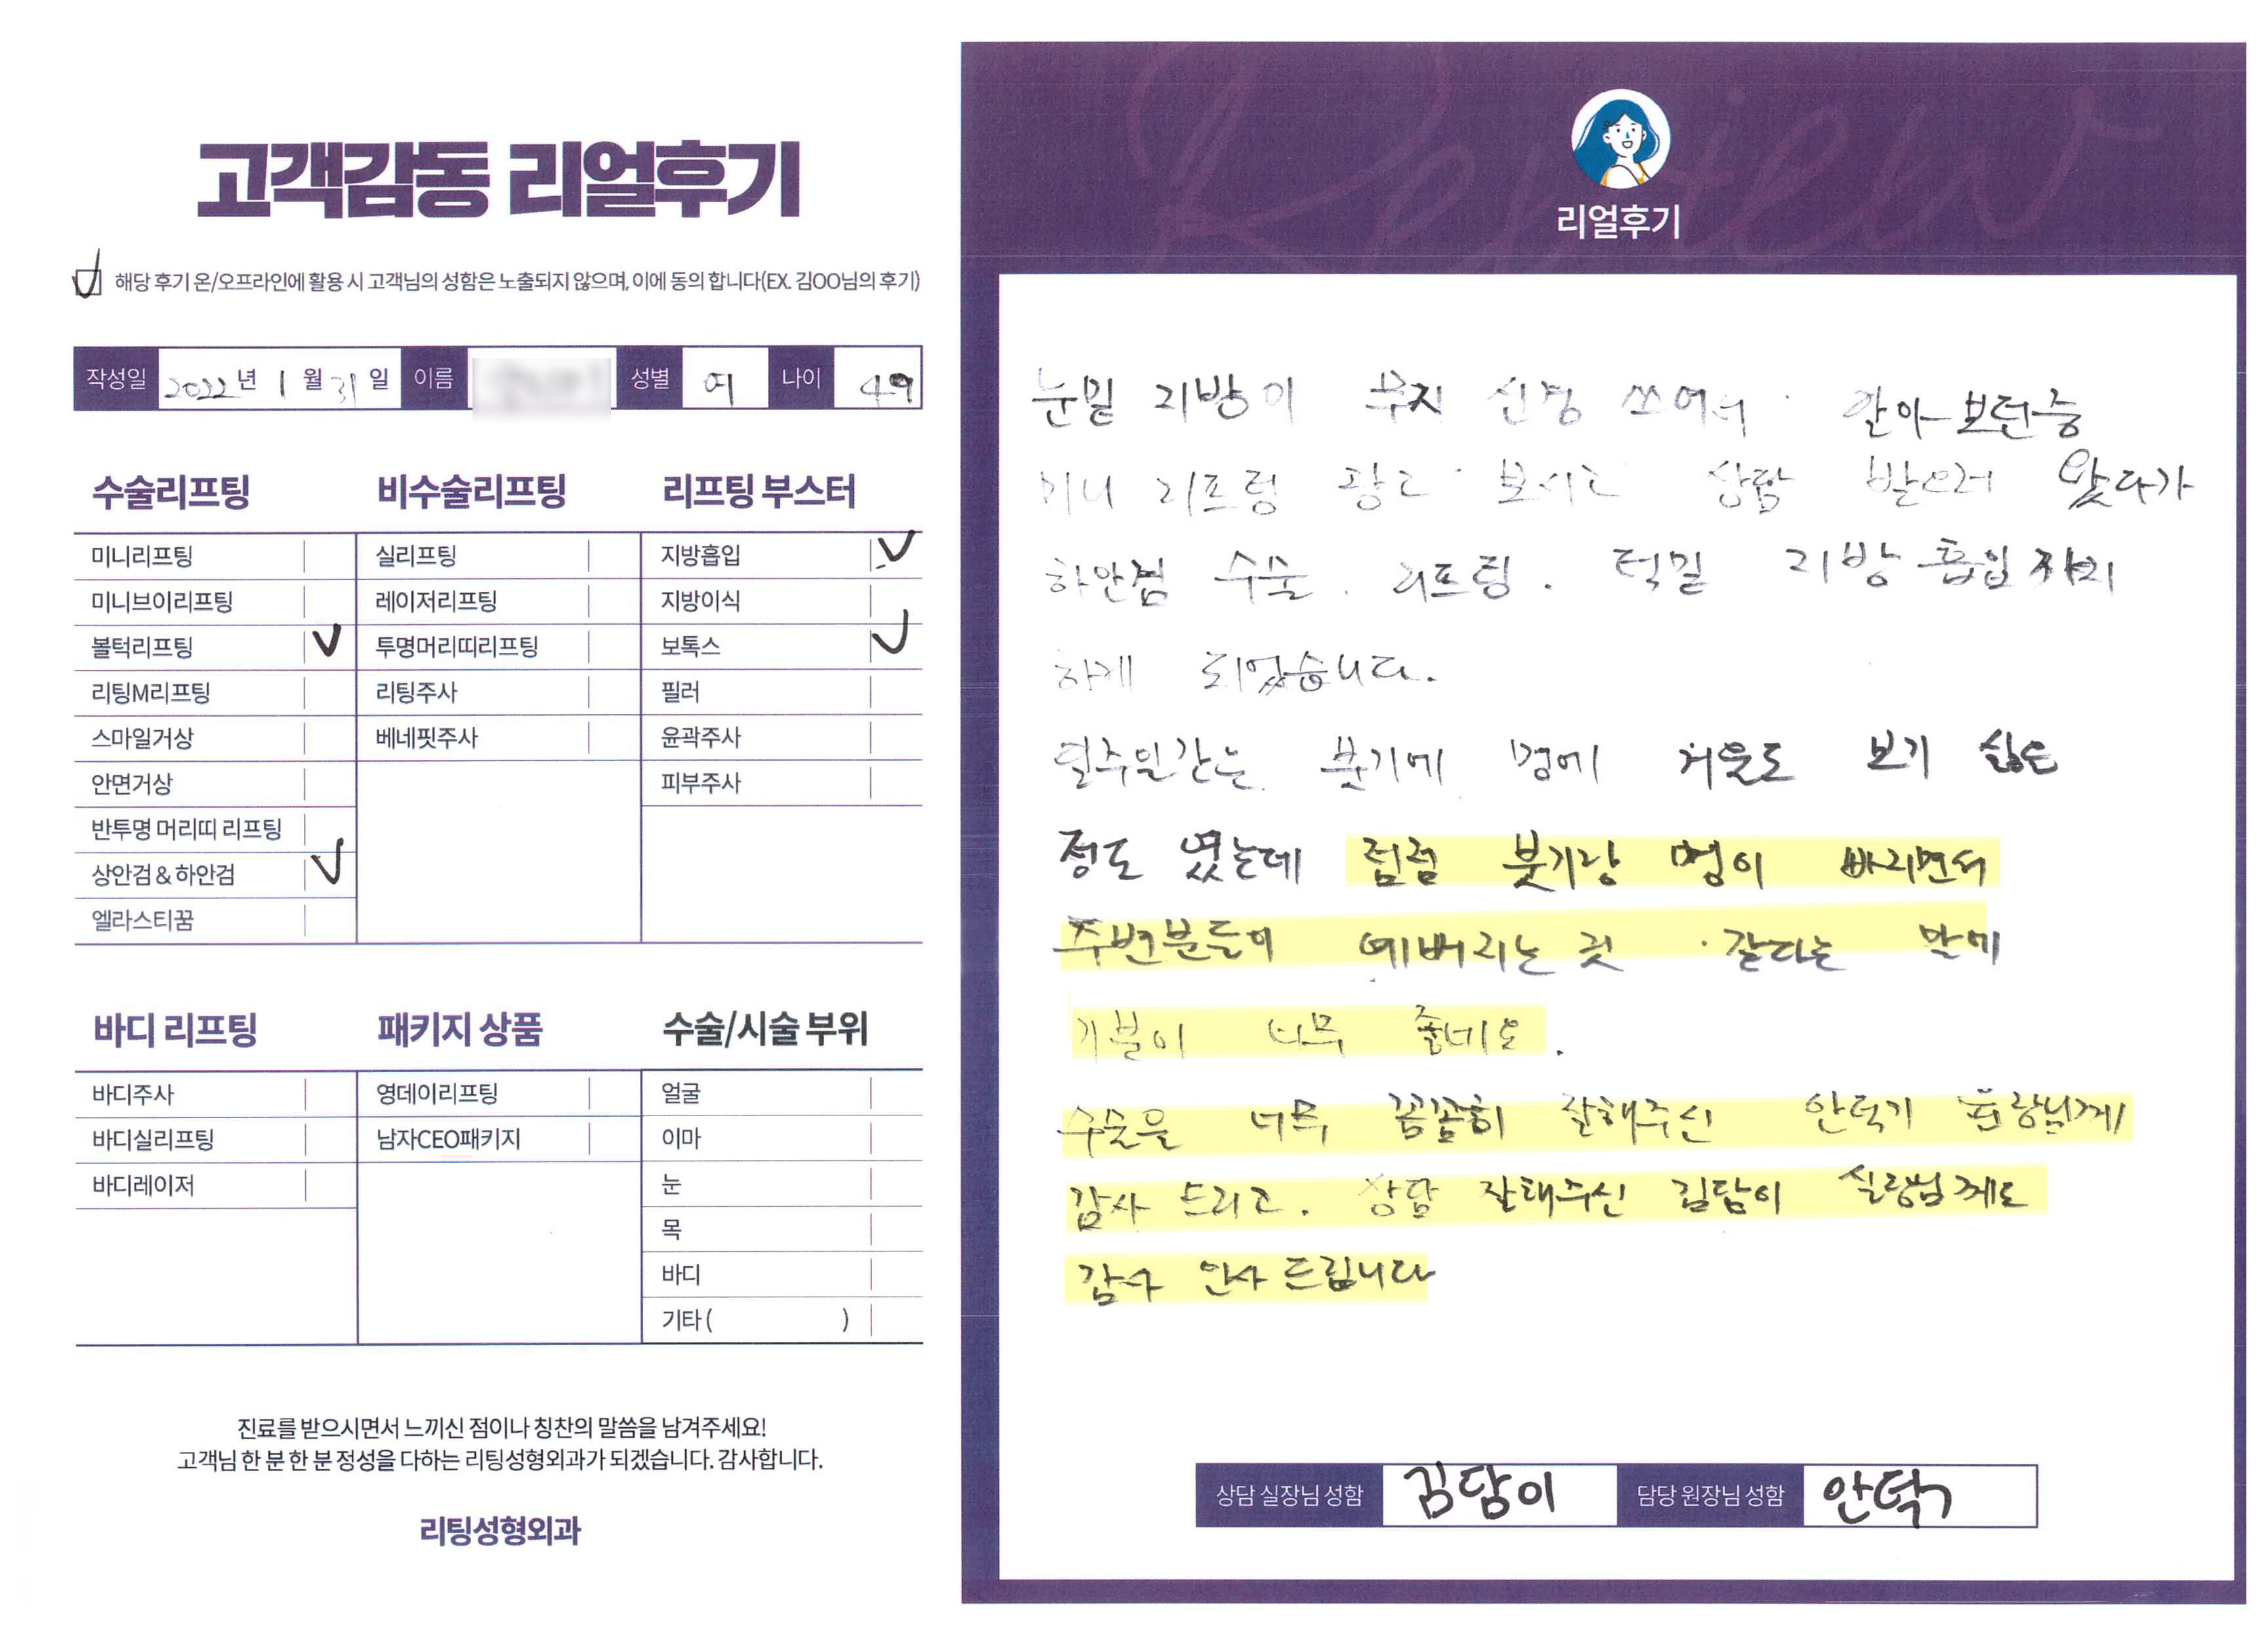 고객감동 리얼후기
해당 후기 온/오프라인에 활용 시 고객님의 성함은 노출되지 않으며, 이에 동의 합니다(EX. 김OO님의 후기)
작성일 2022년 1월 31일 이름 성별 여 나이 49
수술리프팅
미니리프팅
미니브이리프팅
볼턱리프팅 ✓
리팅M리프팅
스마일거상
안면거상
반투명 머리띠 리프팅
상안검 & 하안검 ✓
엘라스티꿈
비수술리프팅
실리프팅
레이저리프팅
투명머리띠리프팅
리팅주사
베네핏주사
리프팅 부스터
지방흡입 ✓
지방이식
보톡스 ✓
필러
윤곽주사
피부주사
바디 리프팅
바디주사
바디실리프팅
바디레이저
패키지 상품
영데이리프팅
남자CEO패키지
수술/시술 부위
얼굴
이마
눈
목
바디
기타 ( )
진료를 받으시면서 느끼신 점이나 칭찬의 말씀을 남겨주세요!
고객님 한 분 한 분 정성을 다하는 리팅성형외과가 되겠습니다. 감사합니다.
리팅성형외과
Review
리얼후기
눈밑 지방이 신경 쓰여서 알아보던중
미니 리프팅 광고 보시고 상담 받으러 왔다가
하안검 수술. 리프팅. 턱밑 지방흡입까지
하게 되었습니다.
일주일간은 붓기에 멍에 거울도 보기 싫은
정도 였는데 점점 붓기랑 멍이 빠지면서
주변분들이 예뻐지는 것 같다는 말에
기분이 너무 좋네요.
수술을 너무 꼼꼼히 잘해주신 안덕기 원장님께
감사 드리고. 상담 잘해주신 김담이 실장님께도
감사 인사 드립니다
상담 실장님 성함 김담이 담당 원장님 성함 안덕기